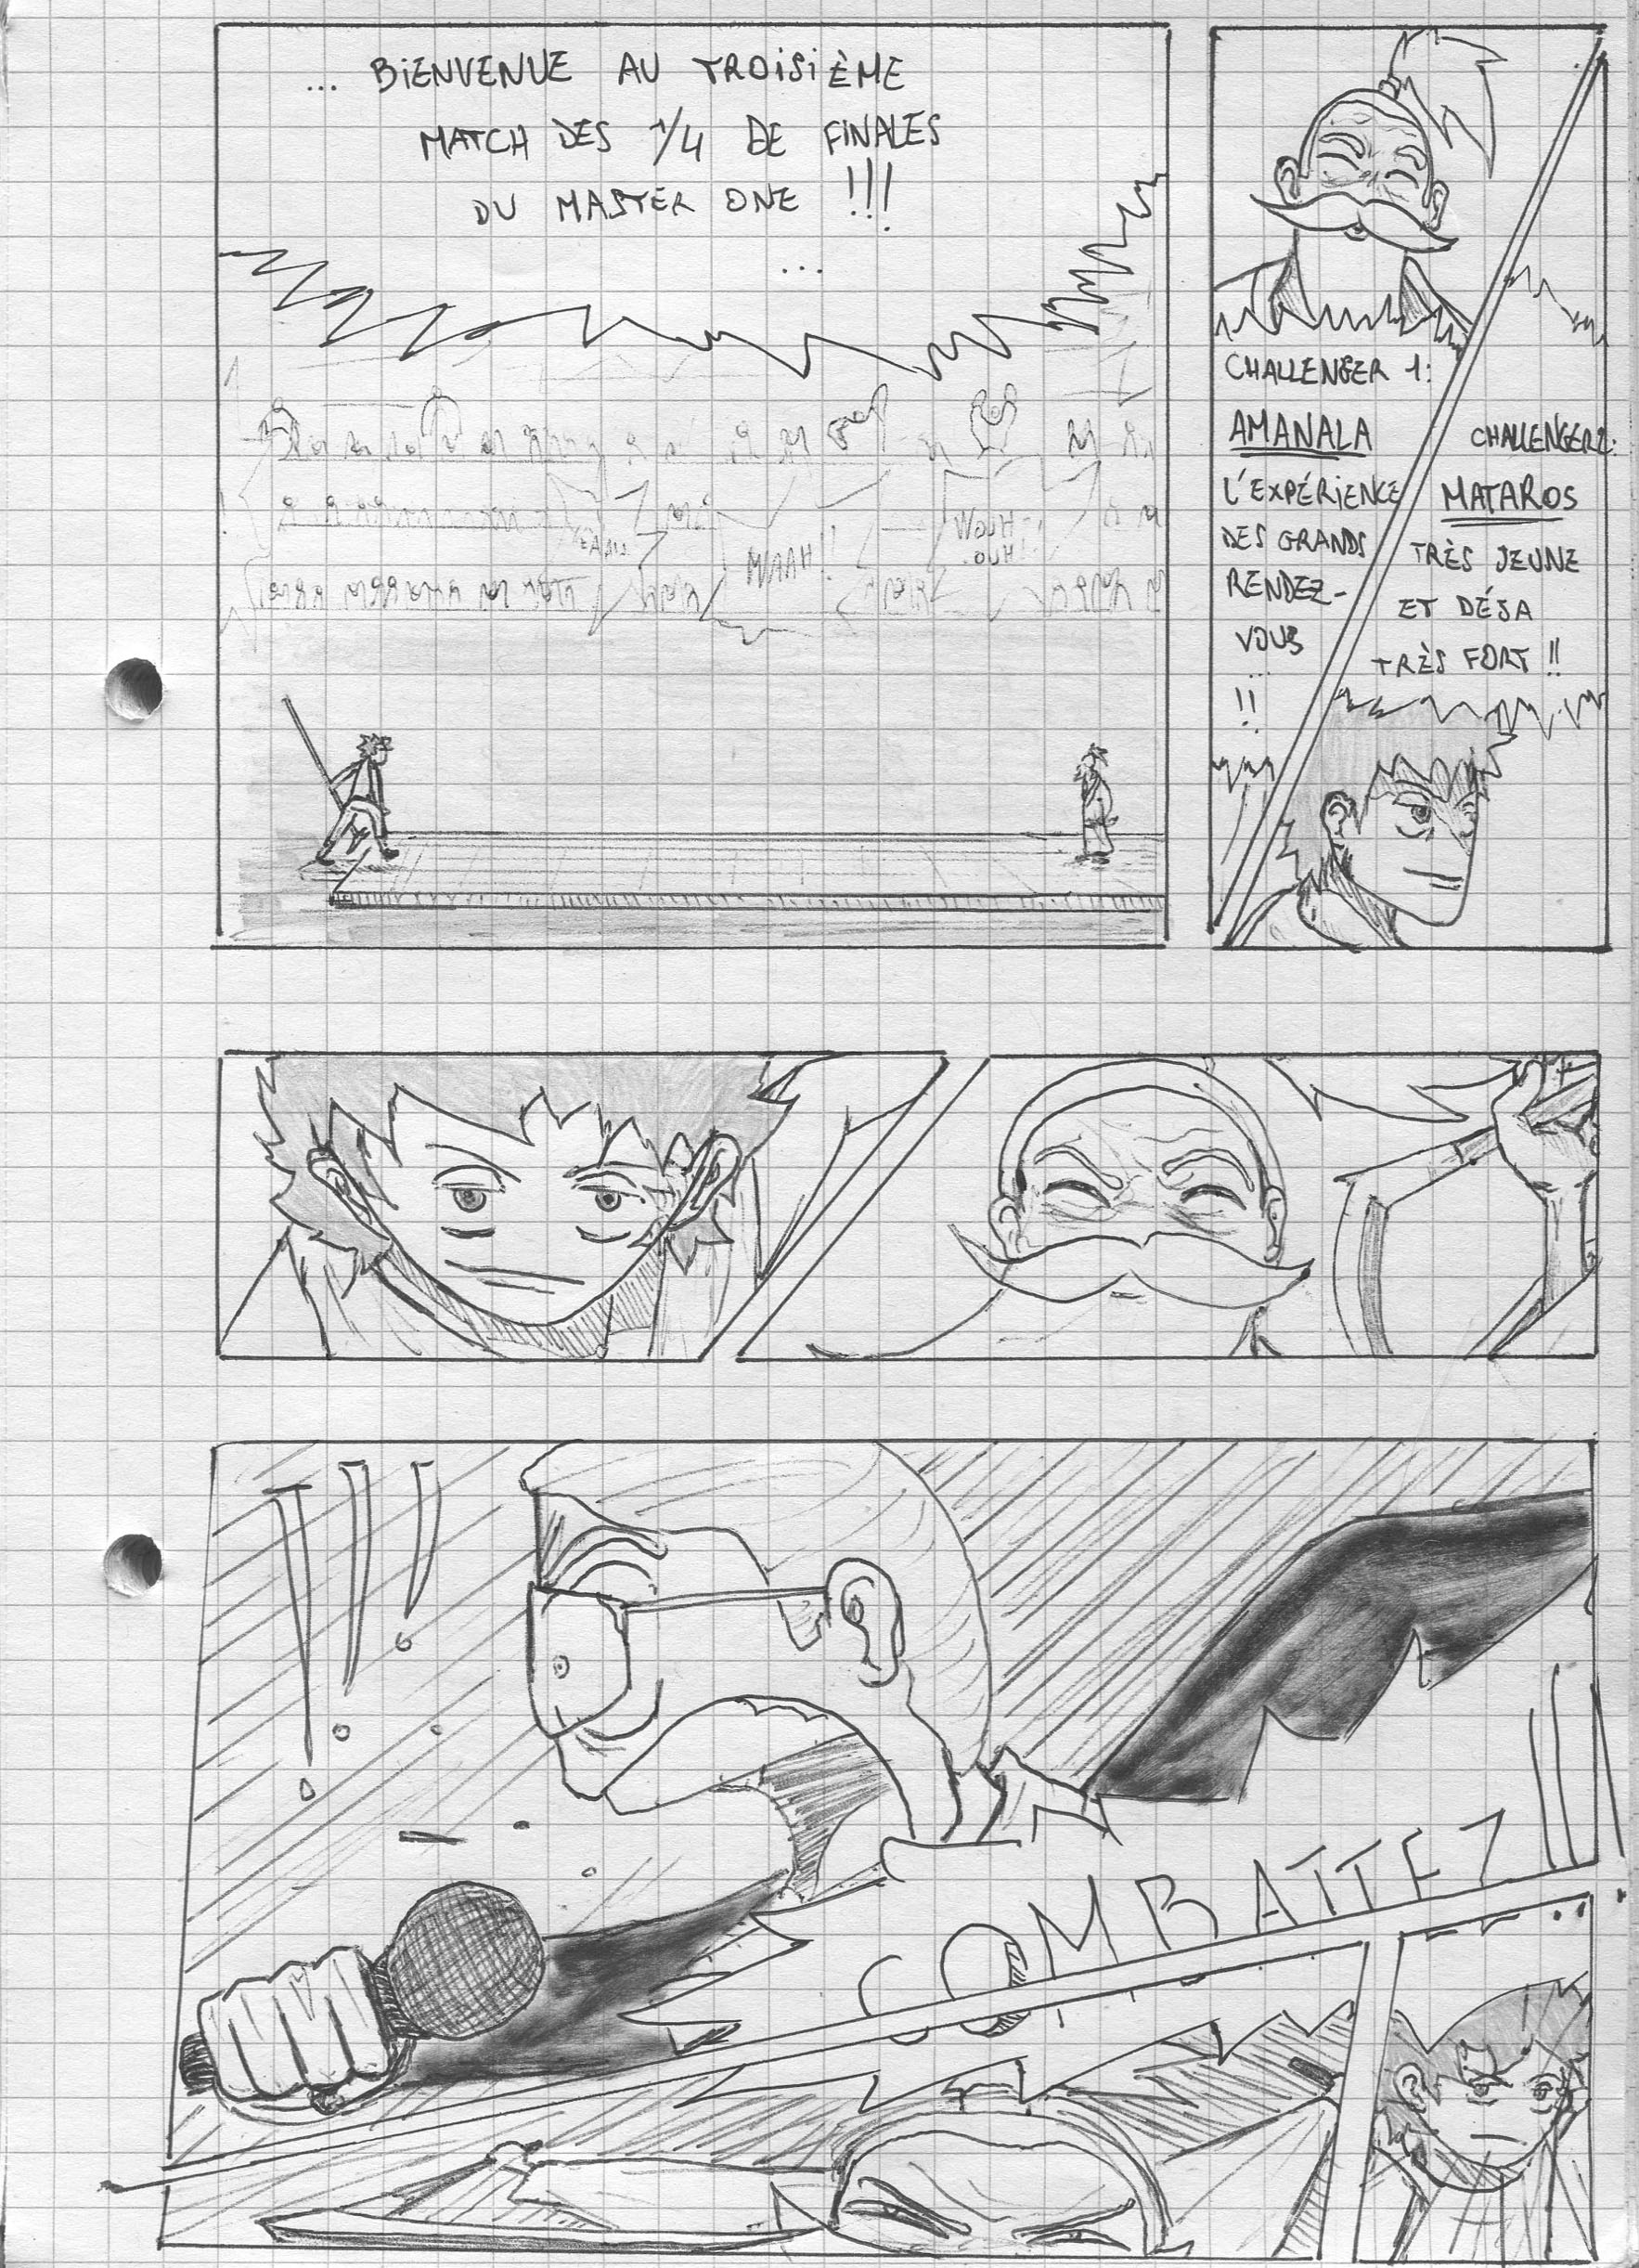 ... BIENVENUE AU TROISIÈME
MATCH DES 1/4 DE FINALES
DU MASTER ONE !!!
...
CHALLENGER 1:
AMANALA
L'EXPÉRIENCE
DES GRANDS
RENDEZ-
VOUS
!!
CHALLENGER 2:
MATAROS
TRÈS JEUNE
ET DÉJA
TRÈS FORT !!
MAAAH!!
COMBATTEZ !!!